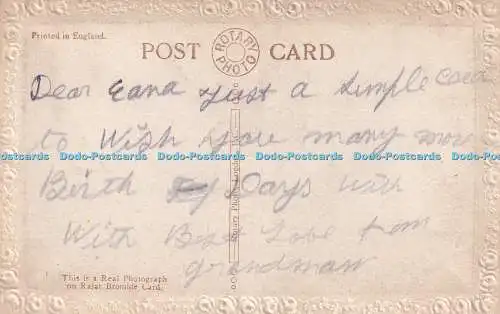 Printed in England.
POST CARD
ROTARY PHOTO
Dear Eana just a simple Card
to Wish you many more
Dodo-Postcards Dodo-Postcards Dodo-Postcards Dodo-Postcards Dodo-Postcards Dodo-Postcards
Birth Days with
With Best Love from
grandmaw
This is a Real Photograph
on Rajar Bromide Card.
Rotary Photo, London, E.C.